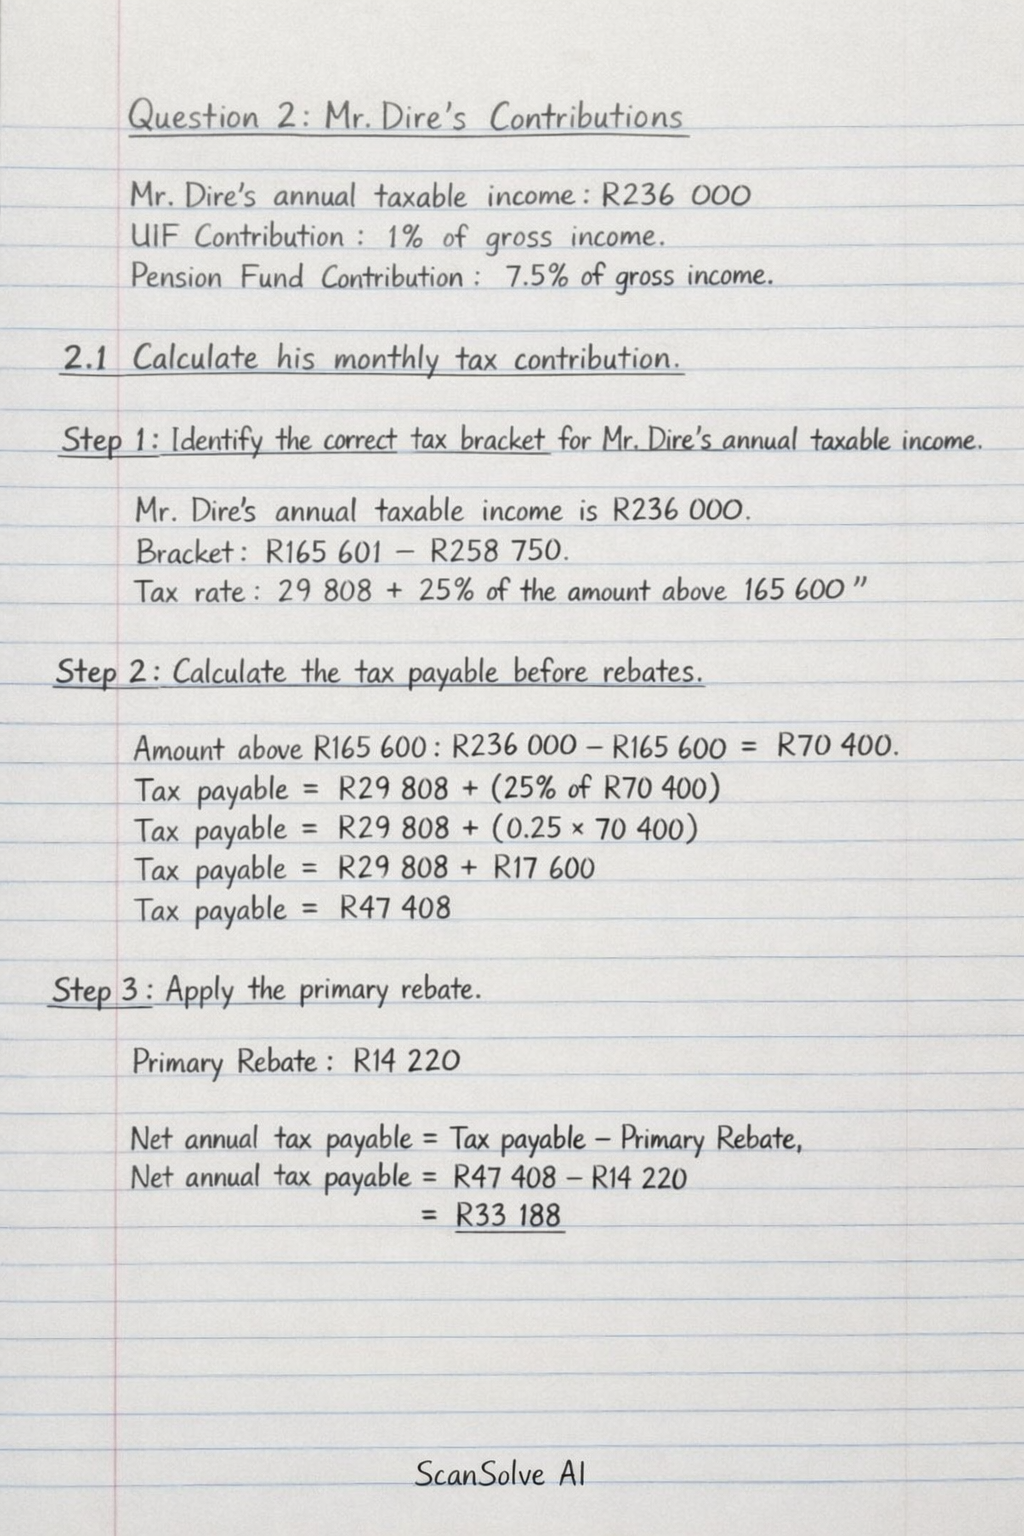 Question 2: Mr. Dire's Contributions
Mr. Dire's annual taxable income: R236 000
UIF Contribution : 1% of gross income.
Pension Fund Contribution : 7.5% of gross income.
2.1 Calculate his monthly tax contribution.
Step 1: Identify the correct tax bracket for Mr. Dire's annual taxable income.
Mr. Dire's annual taxable income is R236 000.
Bracket: R165 601 – R258 750.
Tax rate: 29 808 + 25% of the amount above 165 600"
Step 2: Calculate the tax payable before rebates.
Amount above R165 600: R236 000 – R165 600 = R70 400.
Tax payable = R29 808 + (25% of R70 400)
Tax payable = R29 808 + (0.25 × 70 400)
Tax payable = R29 808 + R17 600
Tax payable = R47 408
Step 3: Apply the primary rebate.
Primary Rebate: R14 220
Net annual tax payable = Tax payable – Primary Rebate,
Net annual tax payable = R47 408 – R14 220
= R33 188
ScanSolve AI